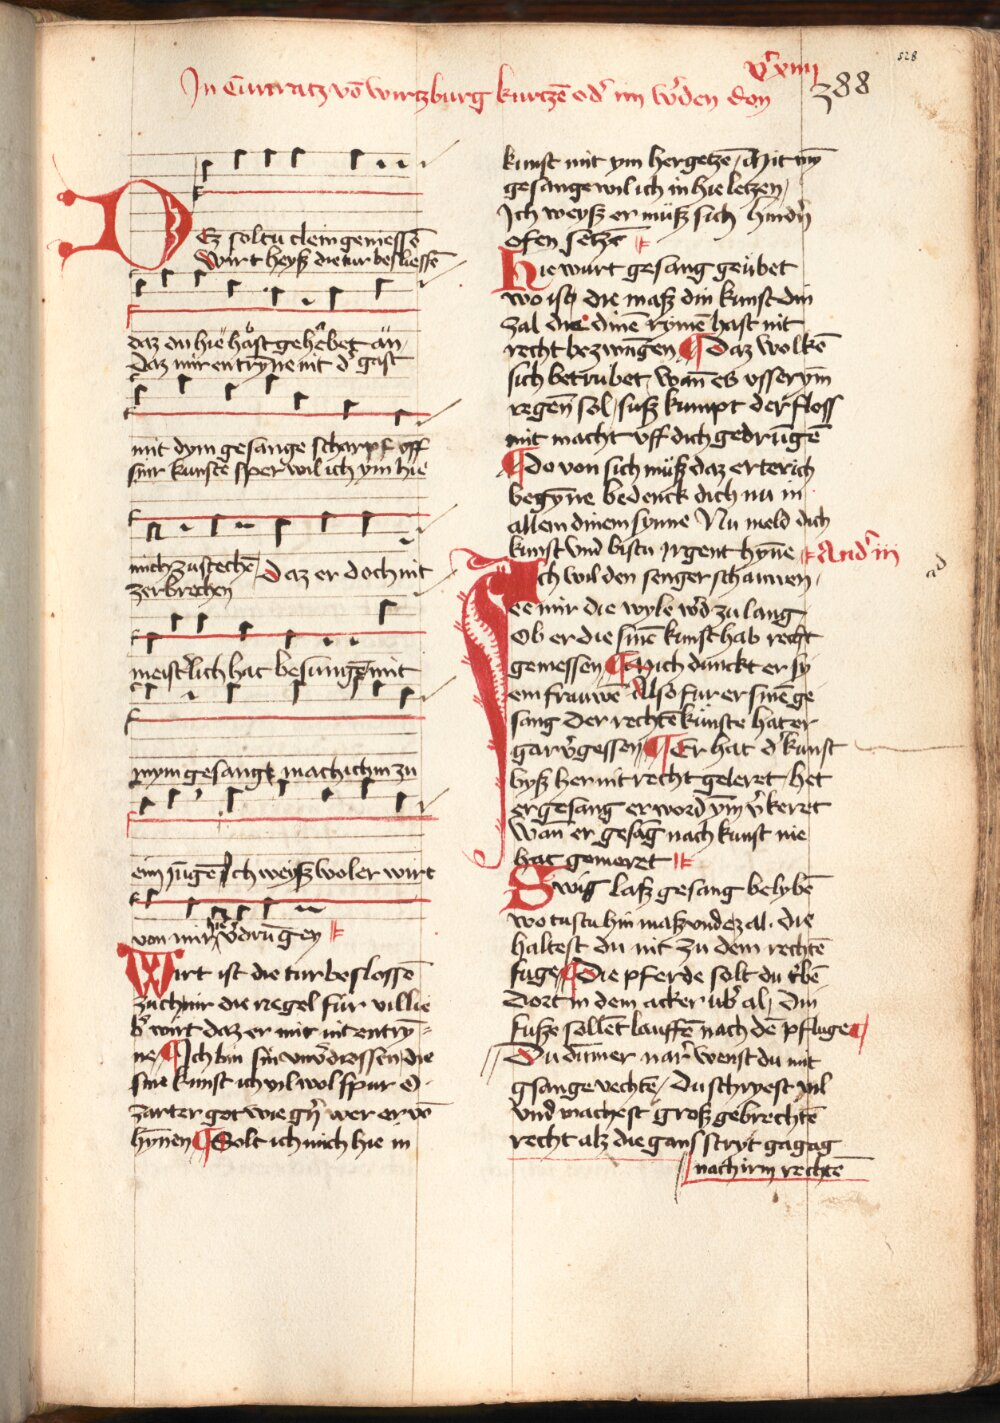 528
v͛ xiiii
In Cunratz võ wirtzburg kurtzẽ od͛ im w͛den don
388
DEz soltu clein geniessẽ
Wirt heyß die tur besliessẽ
daz du hie haͦst geh͛bet an
daz mir entrỹne nit d͛ gast
mit dym gesange scharpf vff
siner kunste sper wil ich ym hie
mich zustechẽ Daz er doch nit
zerbrechen
meist͛lich hat besungẽ mit
mym gesange mach ich in zu
eim jũgẽ Ich weyß wol er wirt
von mir hie v͛drũgen
Wirt ist die tur beslossẽ
zuch mir die riegel fur vil lie
b͛ wirt daz er mir nit entry
ne Ich bin sin vnv͛drossen die
sine kunst ich vil wol spur O
zarter got wie gͤn wer er võ
hynnen Solt ich mich hie in
kunst mit ym hergetzẽ / Mit mỹ
gesange wil ich in hie letzen /
Ich weyß er muͤß sich hindͤn
ofen setzẽ
Hie wurt gesang geuͤbet
wo ist die maß din kunst din
zal die dinẽ rymẽ hast nit
recht bezwungen Daz wolkẽ
sich betrubet wañ es vsser ym
regeñ sol / suß kumpt der floss
mit macht vff dich gedrũgẽ
Do von sich muͤß daz erterich
begỹne bedenck dich nu in
allem dinem synne Nu meld dich
kunst vnd bistu irgent hỹne And͛ iii
Ich wil den senger schauwen /
ee mir die wyle w͛d zu lang
Ob er die sinẽ kunst hab recht
gemessen Mich dunckt er sy
ein frauwẽ Also fur er sinẽ ge
sang Der rechtẽ kuͤnste hat er
gar v͛gessen Er hat d͛ kunst
byß her nit recht geleret het
er gesang er word ym v͛keret
Wan er gesãg nach kunst nie
hat gemeret
Swig laß gesang belybẽ
wo tustu hin maß vnde zal · die
haltest du nit zu dem rechtẽ
fuge Die pferde solt du t͛bẽ
Dort in dem acker ub͛ al / Din
fuße sollẽt lauffẽ nach dẽ pfluge
Du dũmer nar͛ wenst du mit
gsange vechtẽ / Du schryest vil
vnd machest groß gebrechtẽ
recht alz die gans stryt gagag
nach irm rechtẽ